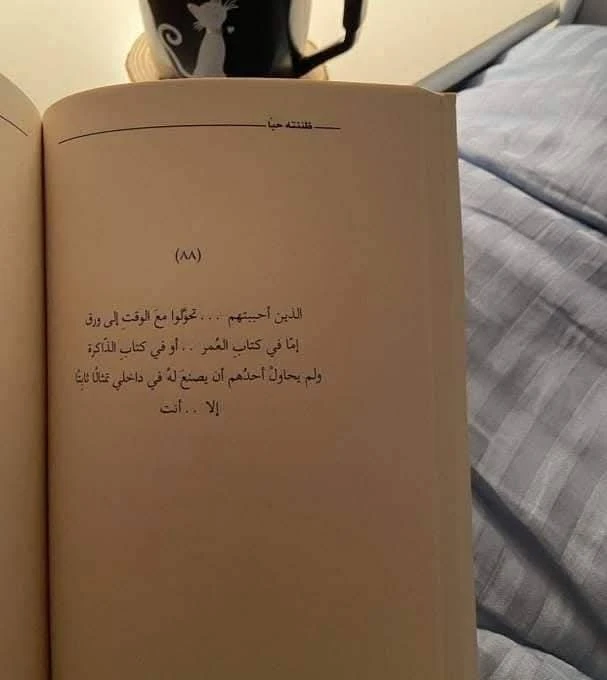 ظننته حبا
(٨٨)
الذين أحببتهم . . . تحوَّلوا معَ الوقتِ إلى ورق
إمّا في كتابِ العُمر . . أو في كتابِ الذّاكرة
ولم يحاولْ أحدُهم أن يصنعَ لهُ في داخلي تمثالًا ثابتًا
إلا . . أنت